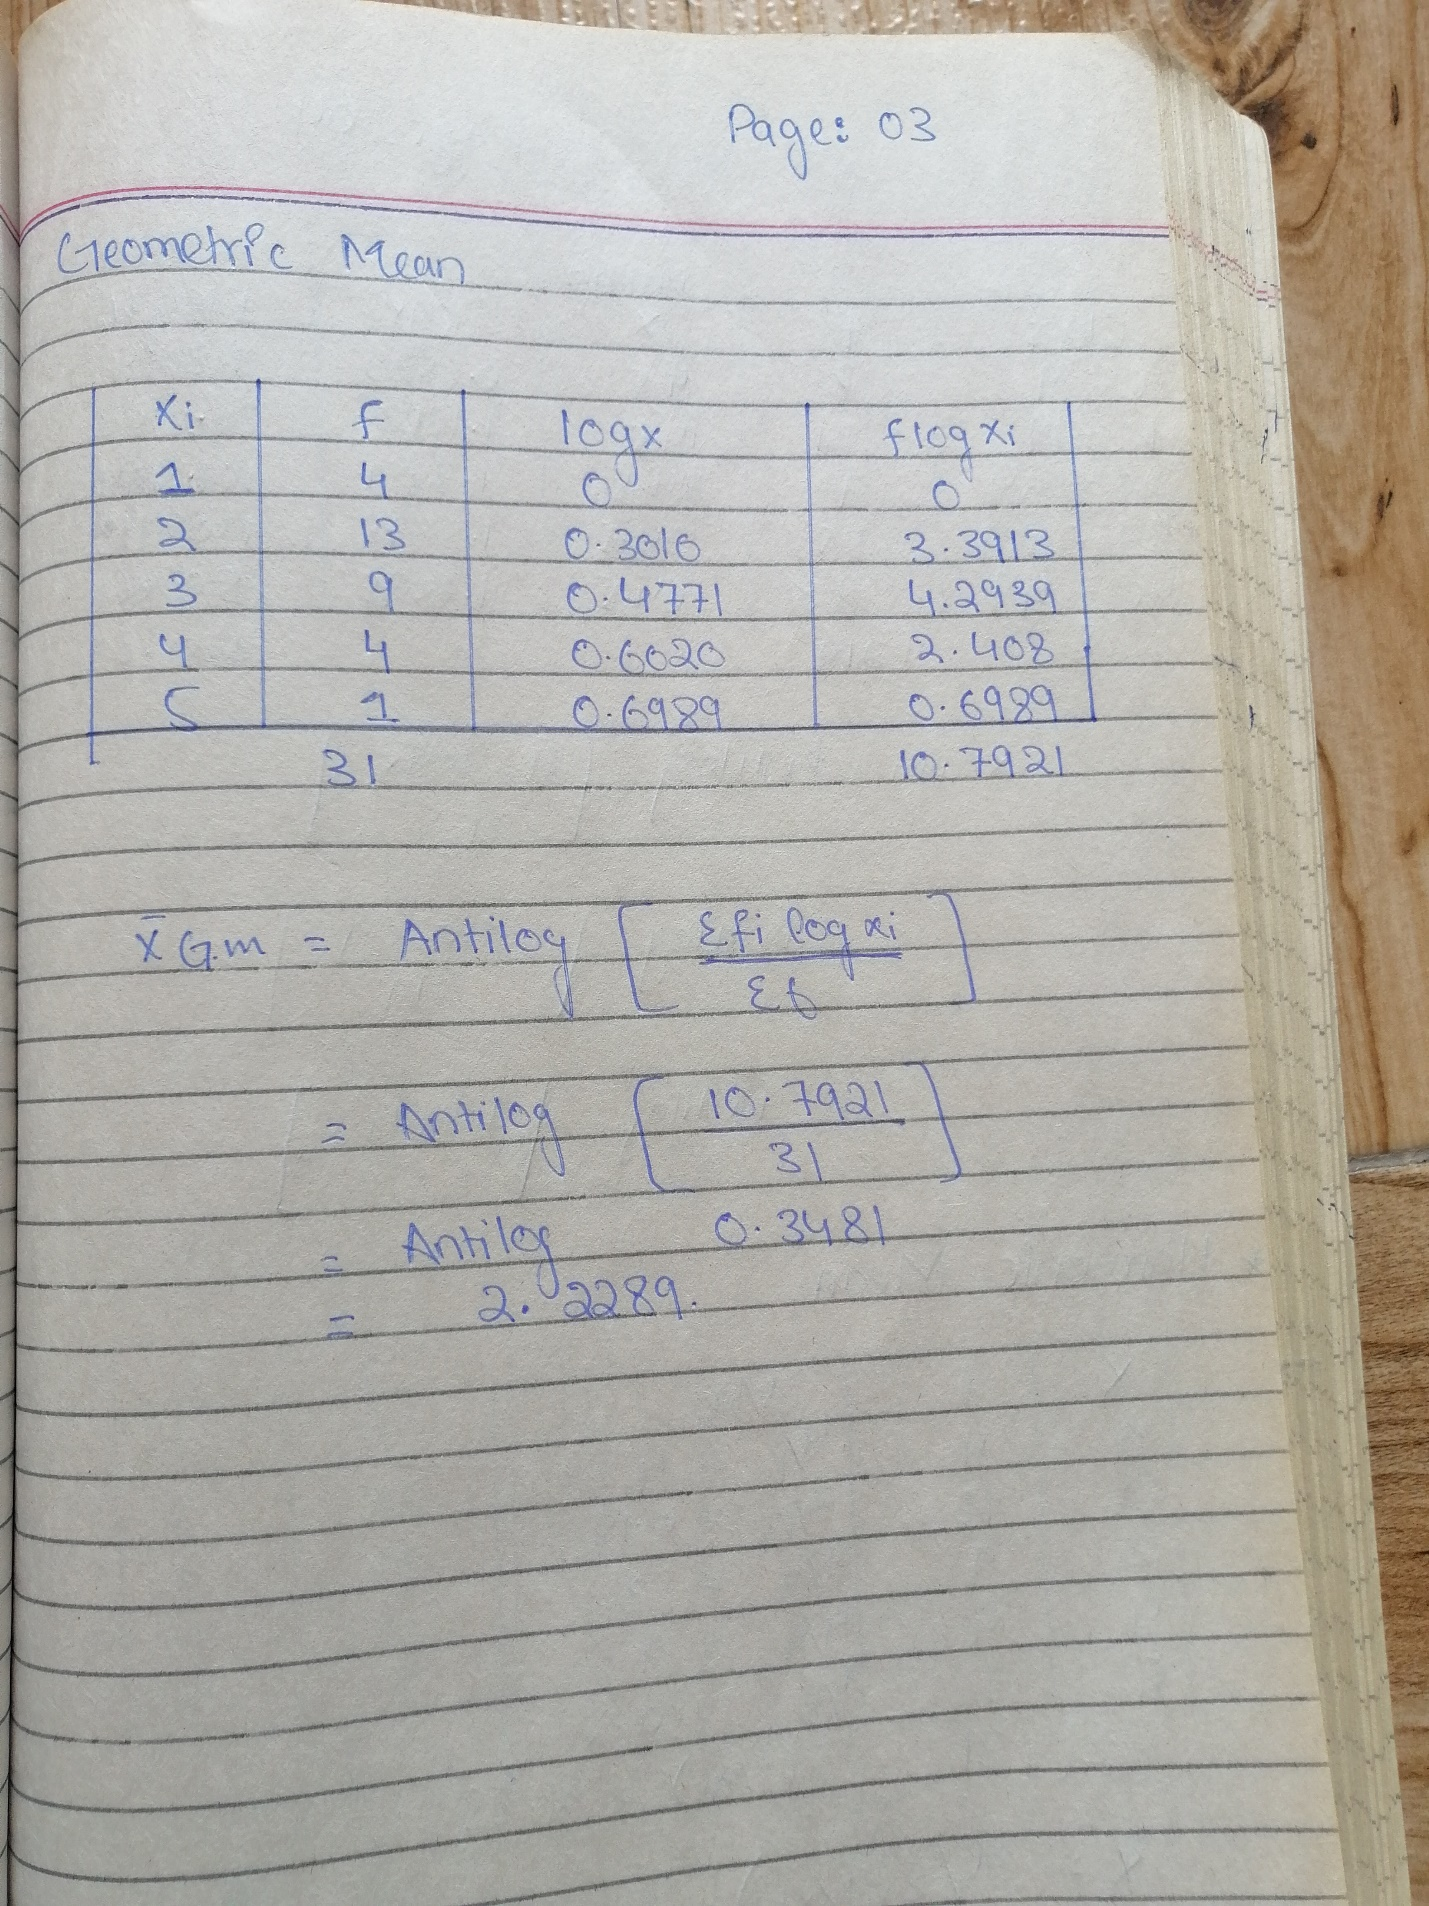 Page: 03
Geometric Mean
Xi f logx flog xi
1 4 0 0
2 13 0.3010 3.3913
3 9 0.4771 4.2939
4 4 0.6020 2.408
5 1 0.6989 0.6989
31 10.7921
x̄ G.m = Antilog [ Σfi log xi / Σf ]
= Antilog [ 10.7921 / 31 ]
= Antilog 0.3481
= 2.2289.